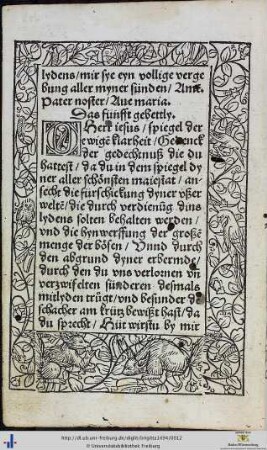 lydens/mir sye eyn vollige verge
bung aller myner sünden/Amē.
Pater noster/Aue maria.
Das fünfft gebettly.
O Herr iesus/spiegel der
ewigē klarheit/Gedenck
der gedechtnuß die du
hattest/da du in dem spiegel dy
ner aller schönsten maiestat/an
sechst die fürschickung dyner vßer
welte͂/die durch verdienūg dins
lydens solten behalten werden/
vnd die hynwerffung der große͂
menge der bösen/Vnnd durch
den abgrund dyner erbermd/
durch den du vns verlornen vn̄
verzwifelten sünderen desmals
mitlyden trügt/vnd besunder dē
schacher am krütz bewißt hast/da
du sprecht/Hüt wirstu by mir
http://dl.ub.uni-freiburg.de/diglit/
© Universitätsbibliothek Freiburg